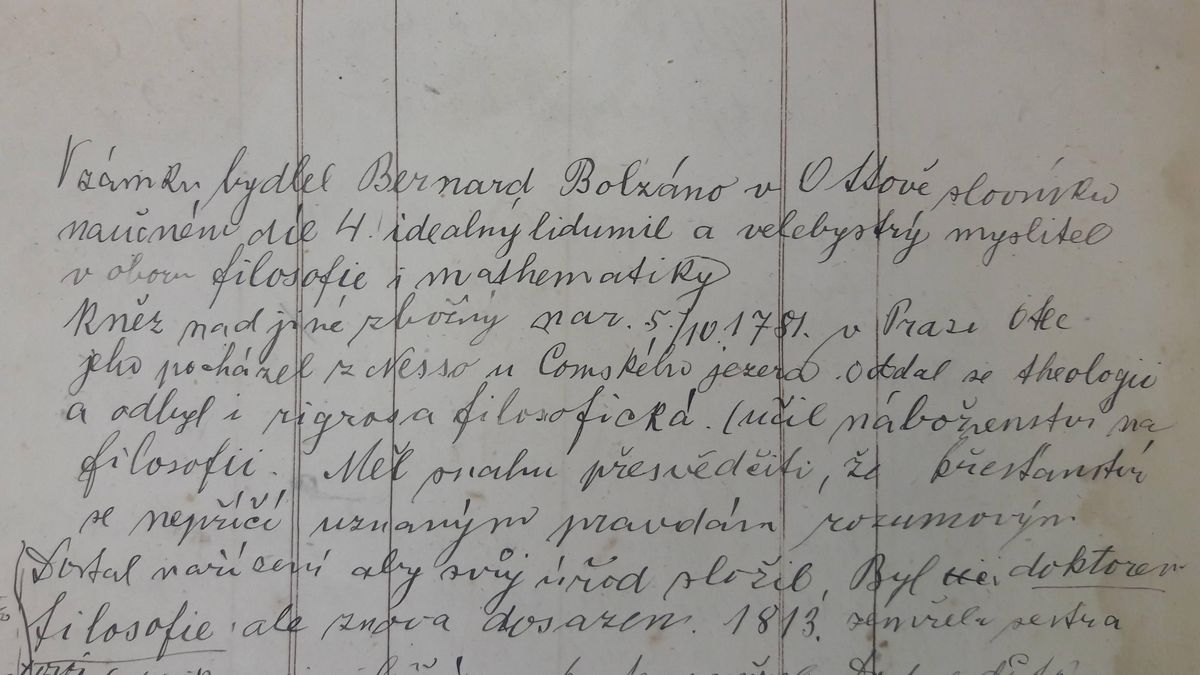 V zámku bydlel Bernard Bolzáno v Ottově slovníku
naučném díl 4. idealný lidumil a velebystrý myslitel
v oboru filosofie i mathematiky
kněz nad jiné zbožný nar. 5./10. 1781. v Praze Otec
jeho pocházel z Nesso u Comského jezera. oddal se theologii
a odbyl i rigrosa filosofická. (učil náboženství na
filosofii. Měl snahu přesvědčiti, že křesťanství
se nepříčí uznaným pravdám rozumovým
Dostal nařízení aby svůj úřad složil, Byl doktorem
filosofie ale znova dosazen. 1813. zemřela sestra